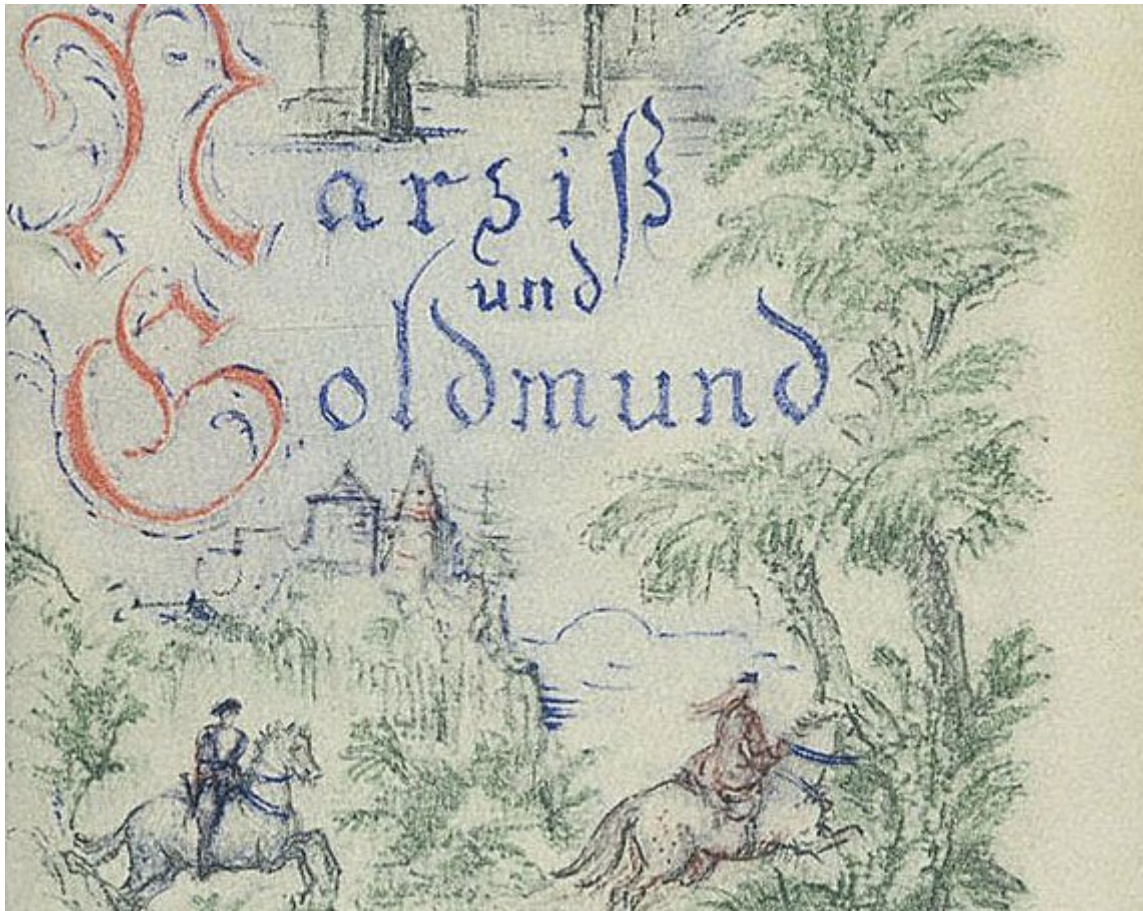 Narziß
und
Goldmund